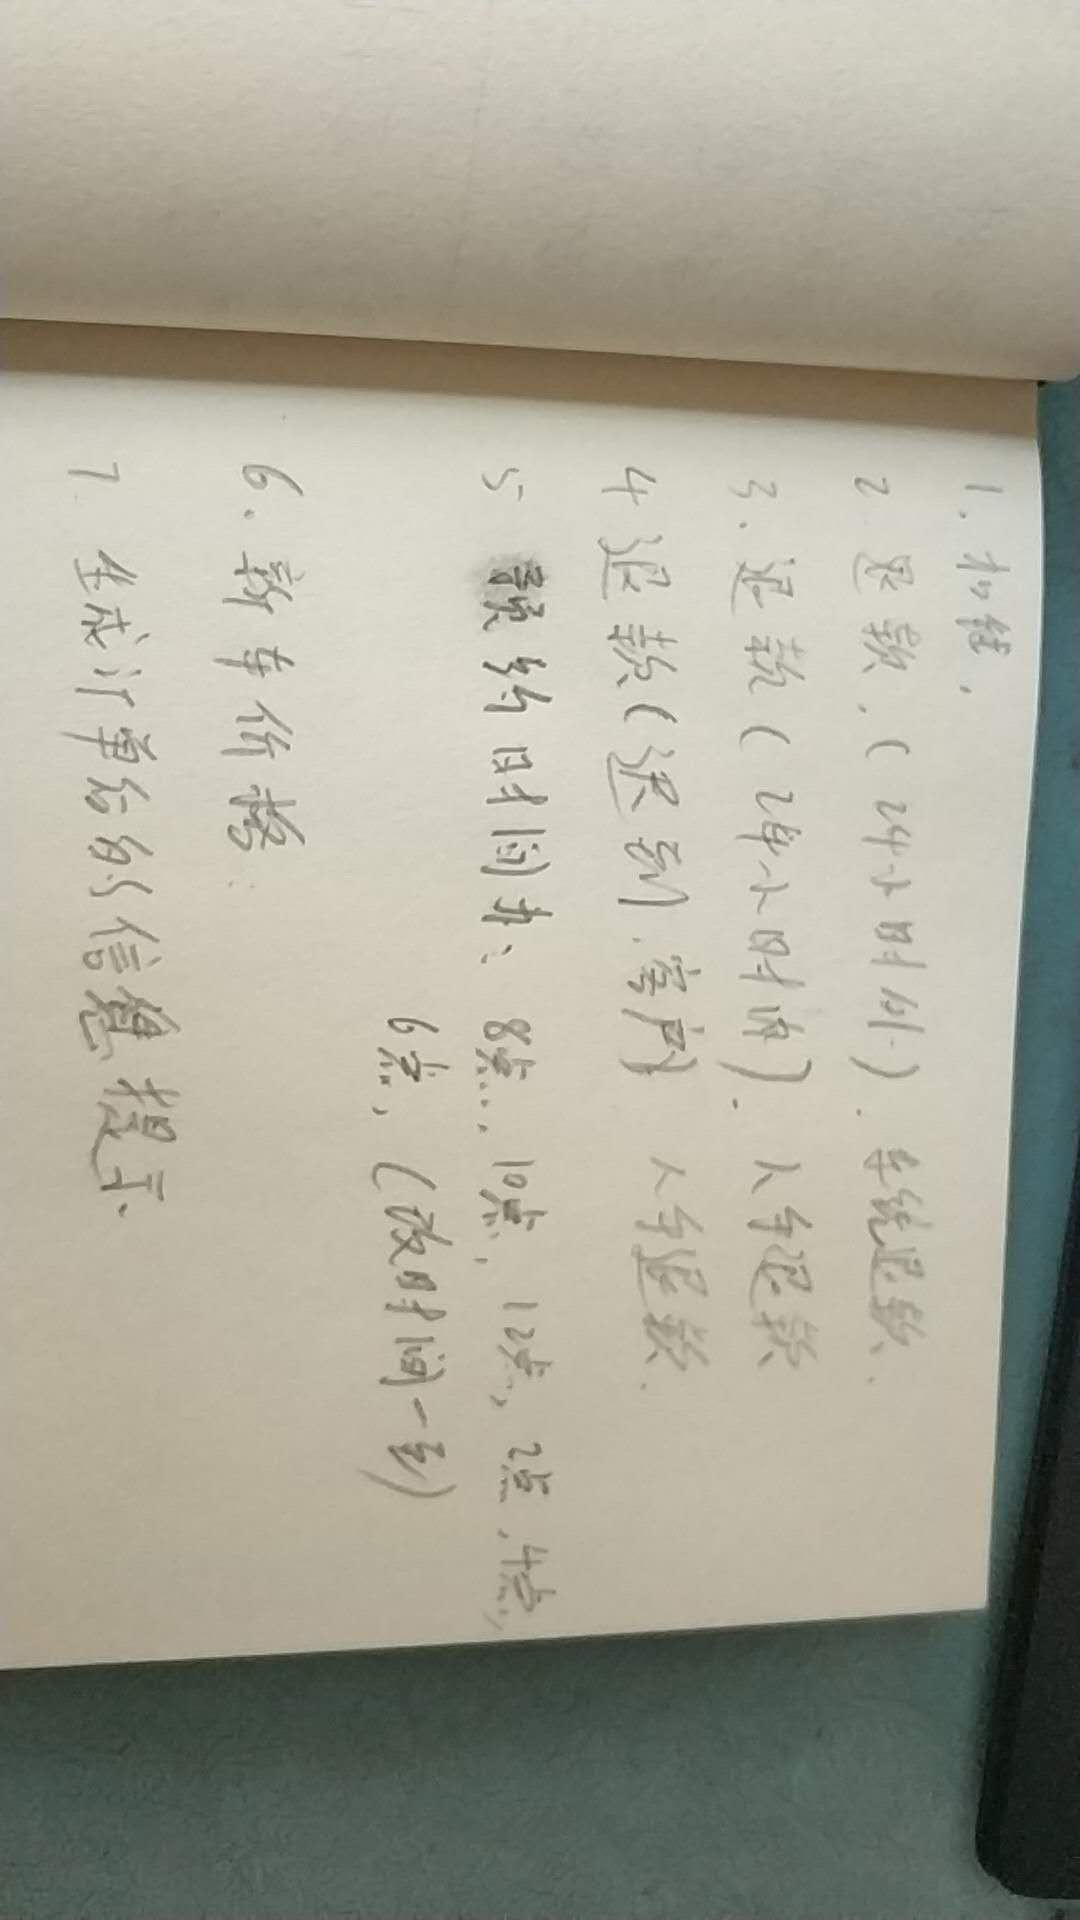 1. 扣钱.
2 退款.(24小时外). 系统退款.
3. 退款(24小时内). 人手退款
4 退款(迟到.客户) 人手退款.
5 预约时间为: 8点, 10点, 12点, 2点, 4点,
6点, (改时间一到)
6. 新车价格.
7 生成订单后的信息提示.